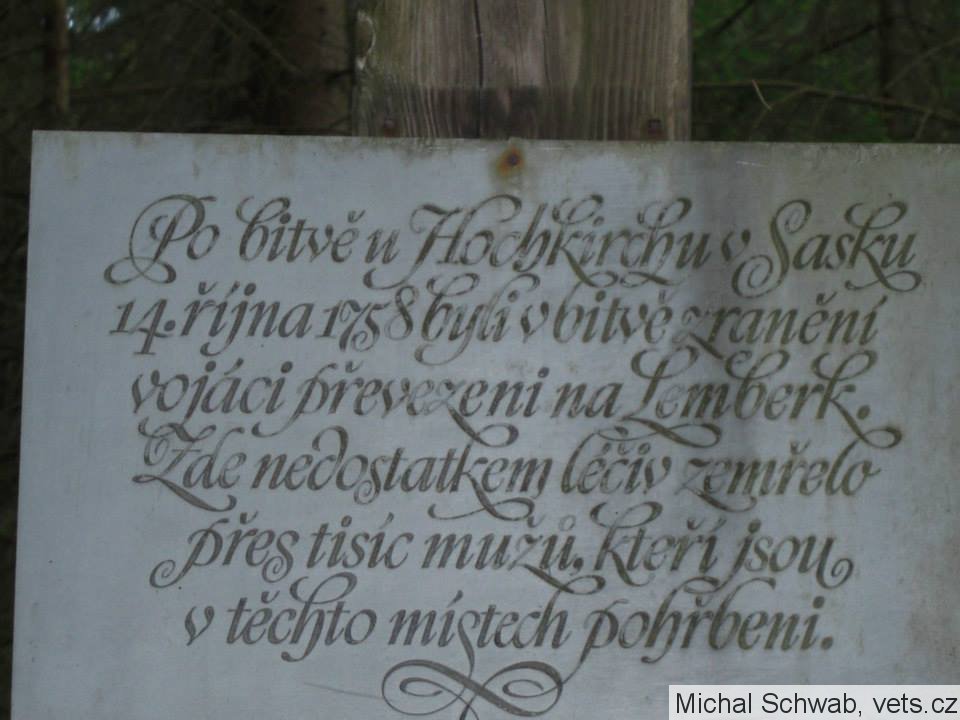 Po bitvě u Hochkirchu v Sasku
14. října 1758 byli v bitvě zranění
vojáci převezeni na Lemberk.
Zde nedostatkem léčiv zemřelo
přes tisíc mužů, kteří jsou
v těchto místech pohřbeni.
Michal Schwab, vets.cz